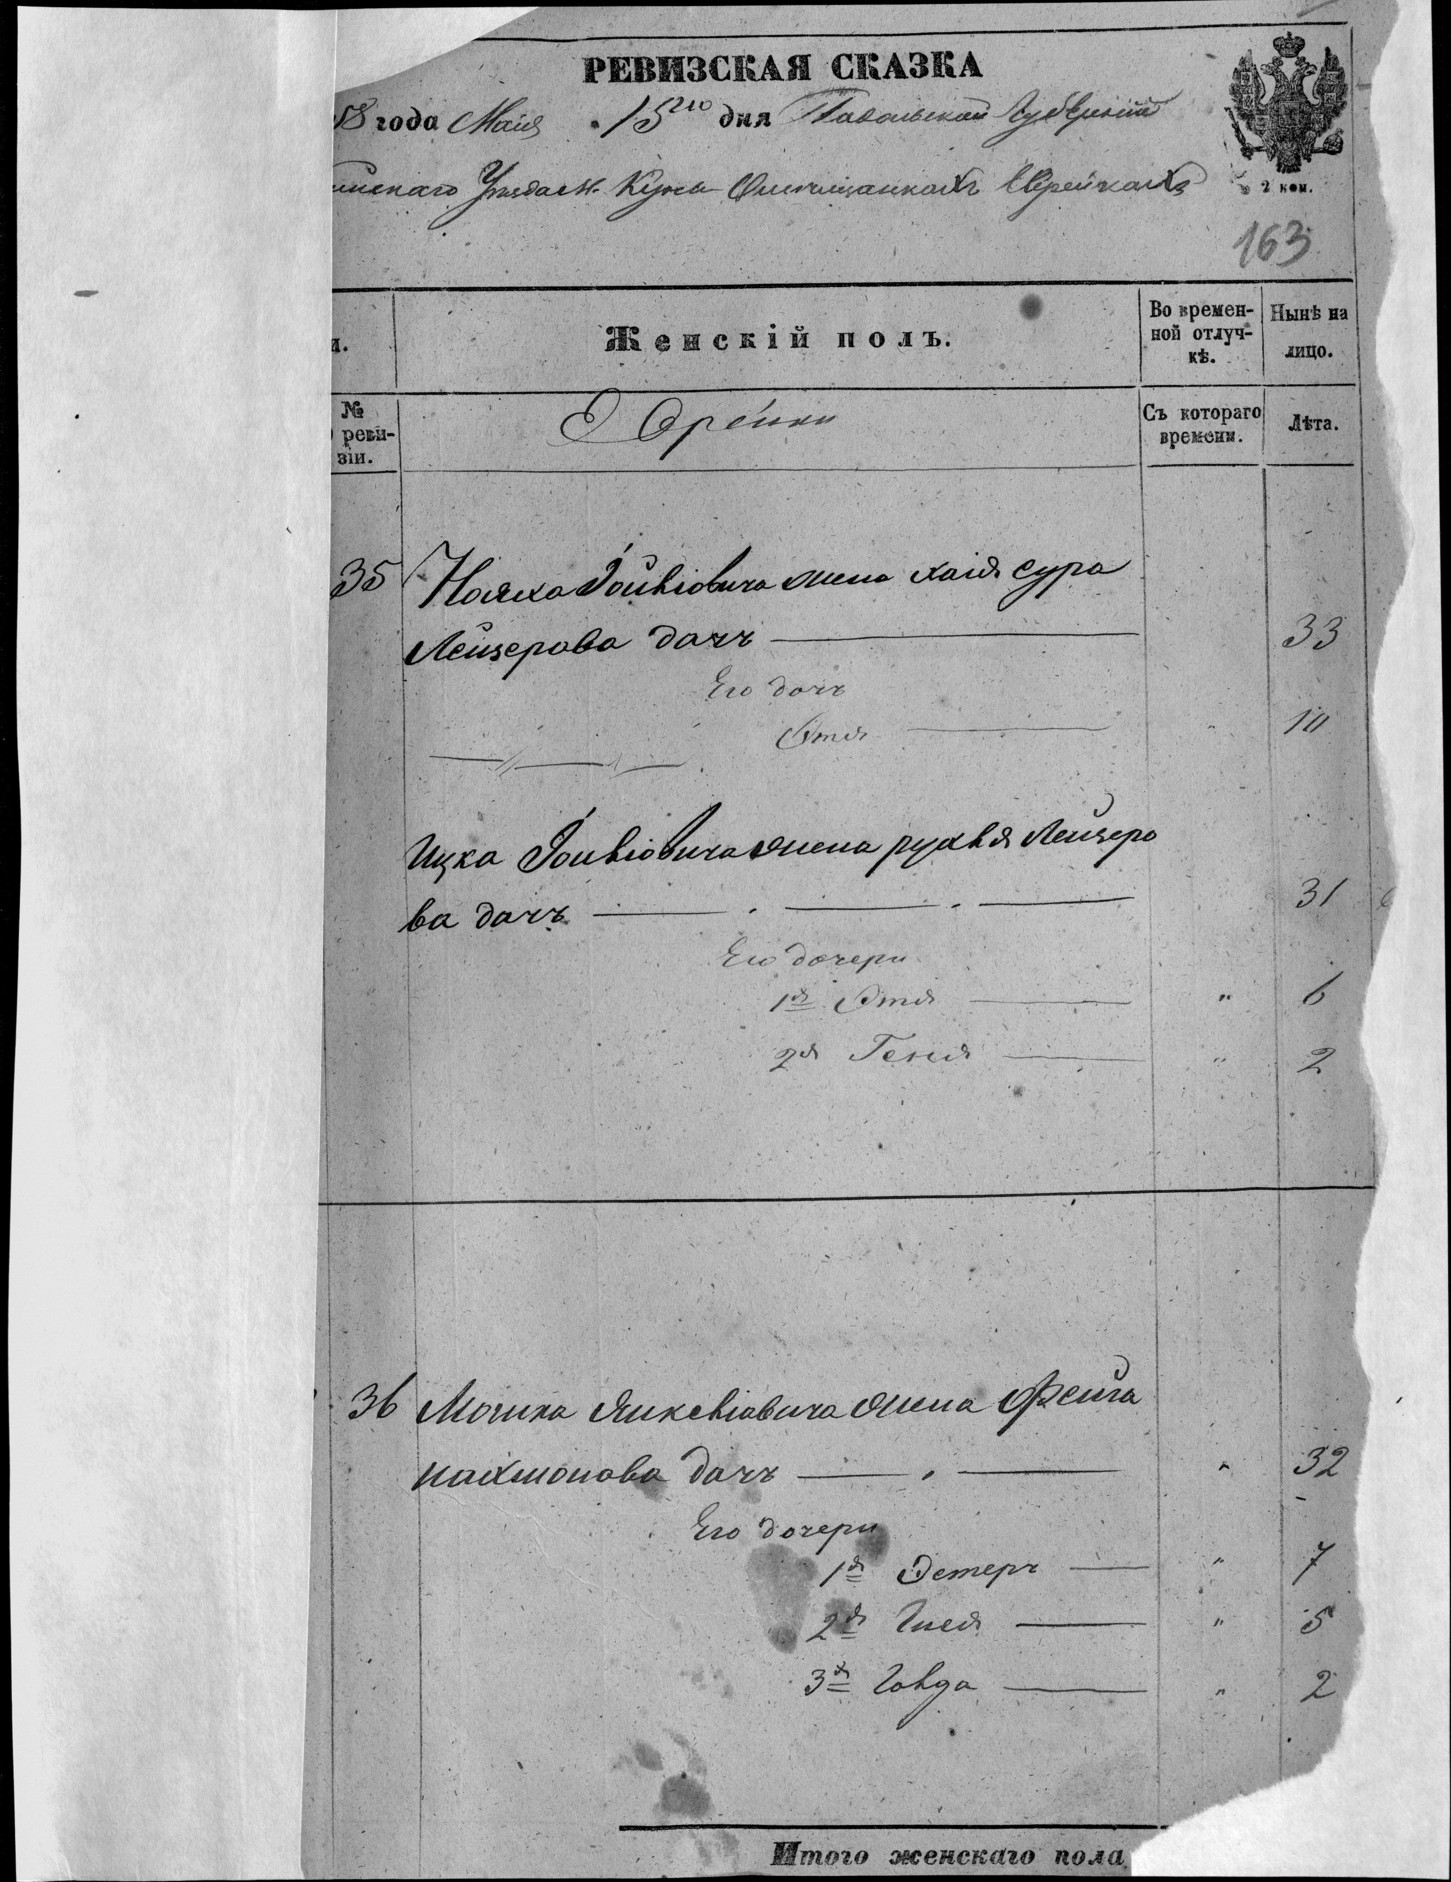 РЕВИЗСКАЯ СКАЗКА
58 года Маія 15го дня Падольской Губерніи
Уезда м. Кужы Омещанкахъ Еврейкахъ
2 коп.
163
Женскій полъ.
Во времен-
ной отлуч-
кѣ.
Нынѣ на
лицо.
№
реви-
зіи.
Еврейки
Съ котораго
времени.
Лѣта.
35 Нояха Іойвіовича жена хаія сура
Лейзерова дочъ 33
Его дочъ
Этя 10
Ицка Іойвіовича жена рухля Лейзеро
ва дочъ 31
Его дочери
1я Этя " 6
2я Геня " 2
36 Мошка Янкевіовича жена Фейга
нахмонова дочъ " 32
Его дочери
1я Эстеръ " 7
2я Гися " 5
3я Говда " 2
Итого женскаго пола